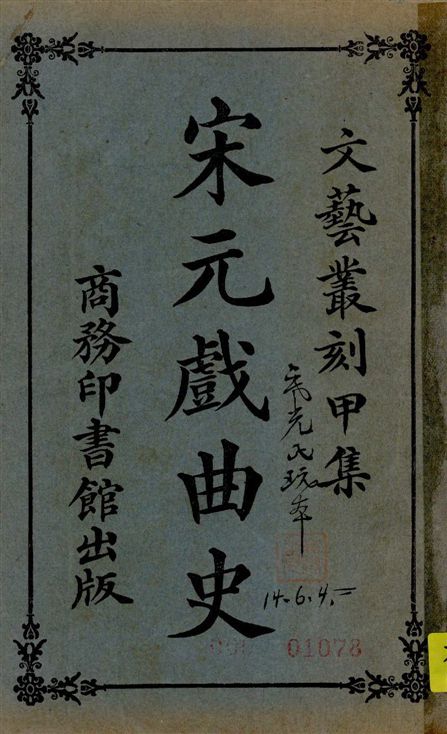 文藝叢刻甲集
宋元戲曲史
商務印書館出版
14.6.4.
01078